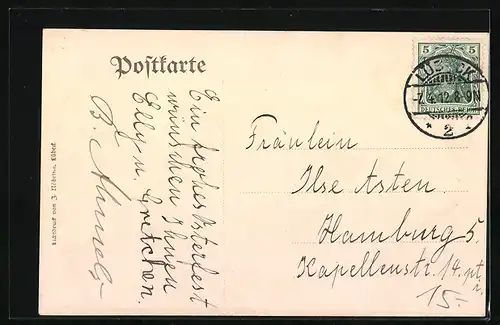 Postkarte
5 5
LÜBECK
7.4.12.8-9N
* 2 *
DEUTSCHES REICH
Ein frohes Osterfest
wünschen Ihnen
Elly u. Gretchen.
B.
Fräulein
Ilse Asten.
Hamburg 5.
Kapellenstr. 14. pt.
r.
15.
Lichtdruck von J. Lübeck